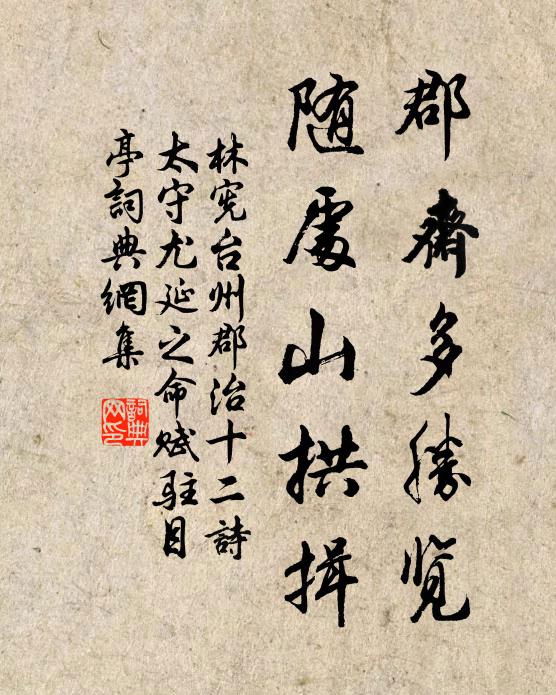 郡斋多勝览
随處山拱揖
林宪台州郡治十二詩
太守尤延之命赋駐目
亭詞典網集
詞典
网印